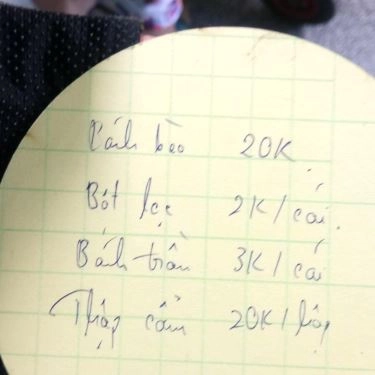 Bánh bèo 20K
Bột lọc 2K/cái.
Bánh trần 3K/cái
Thập cẩm 20K/hộp